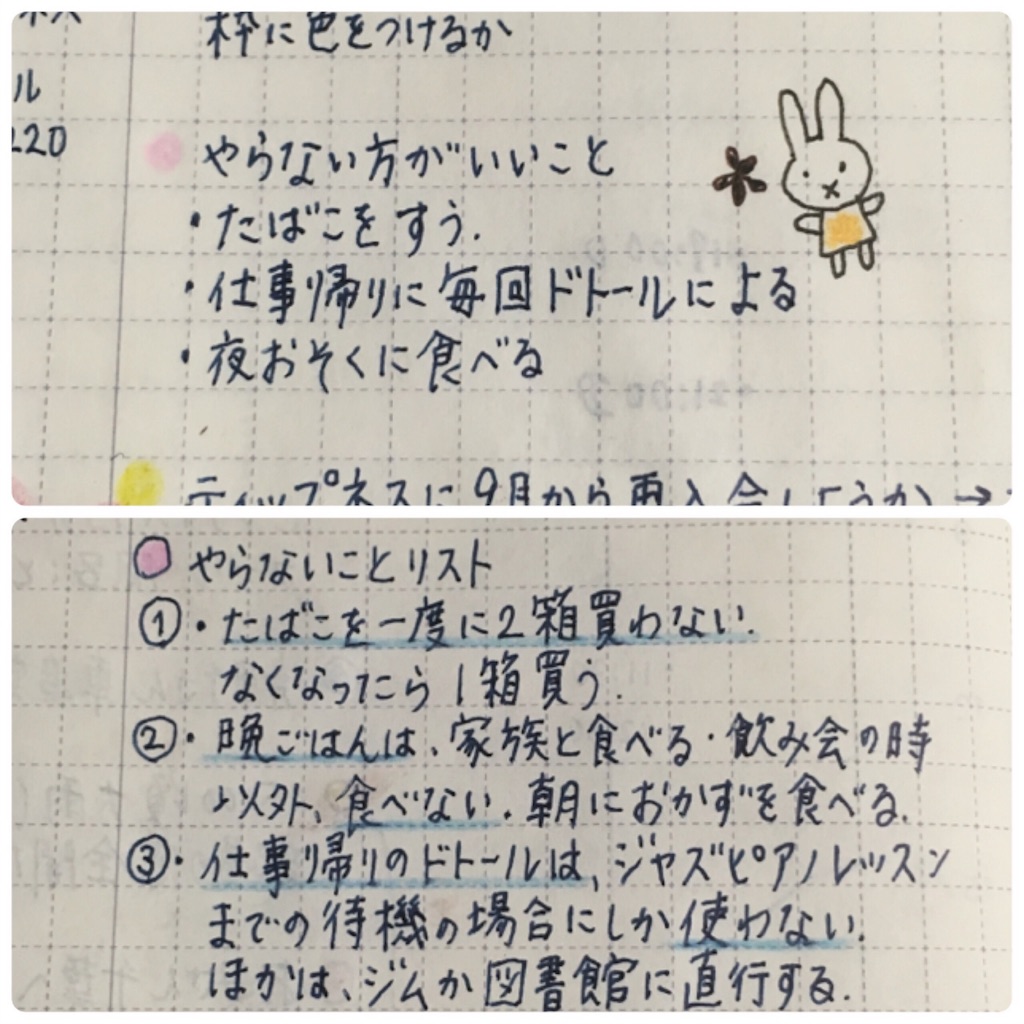 ル
220
枠に色をつけるか
やらない方がいいこと
・たばこをすう.
・仕事帰りに毎回ドトールによる
・夜おそくに食べる
ティップネスに9月から再入会しようか→
やらないことリスト
①・たばこを一度に2箱買わない.
なくなったら1箱買う.
②・晩ごはんは、家族と食べる・飲み会の時
以外、食べない.朝におかずを食べる.
③・仕事帰りのドトールは、ジャズピアノレッスン
までの待機の場合にしか使わない.
ほかは、ジムか図書館に直行する.